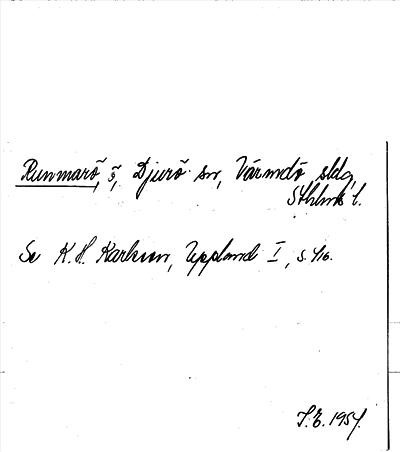 Runmarö, ö, Djurö sn, Värmdö skdg,
Sthlms l.
Se K. H. Karlsson, Uppland I, s. 410.
J. E. 1954.